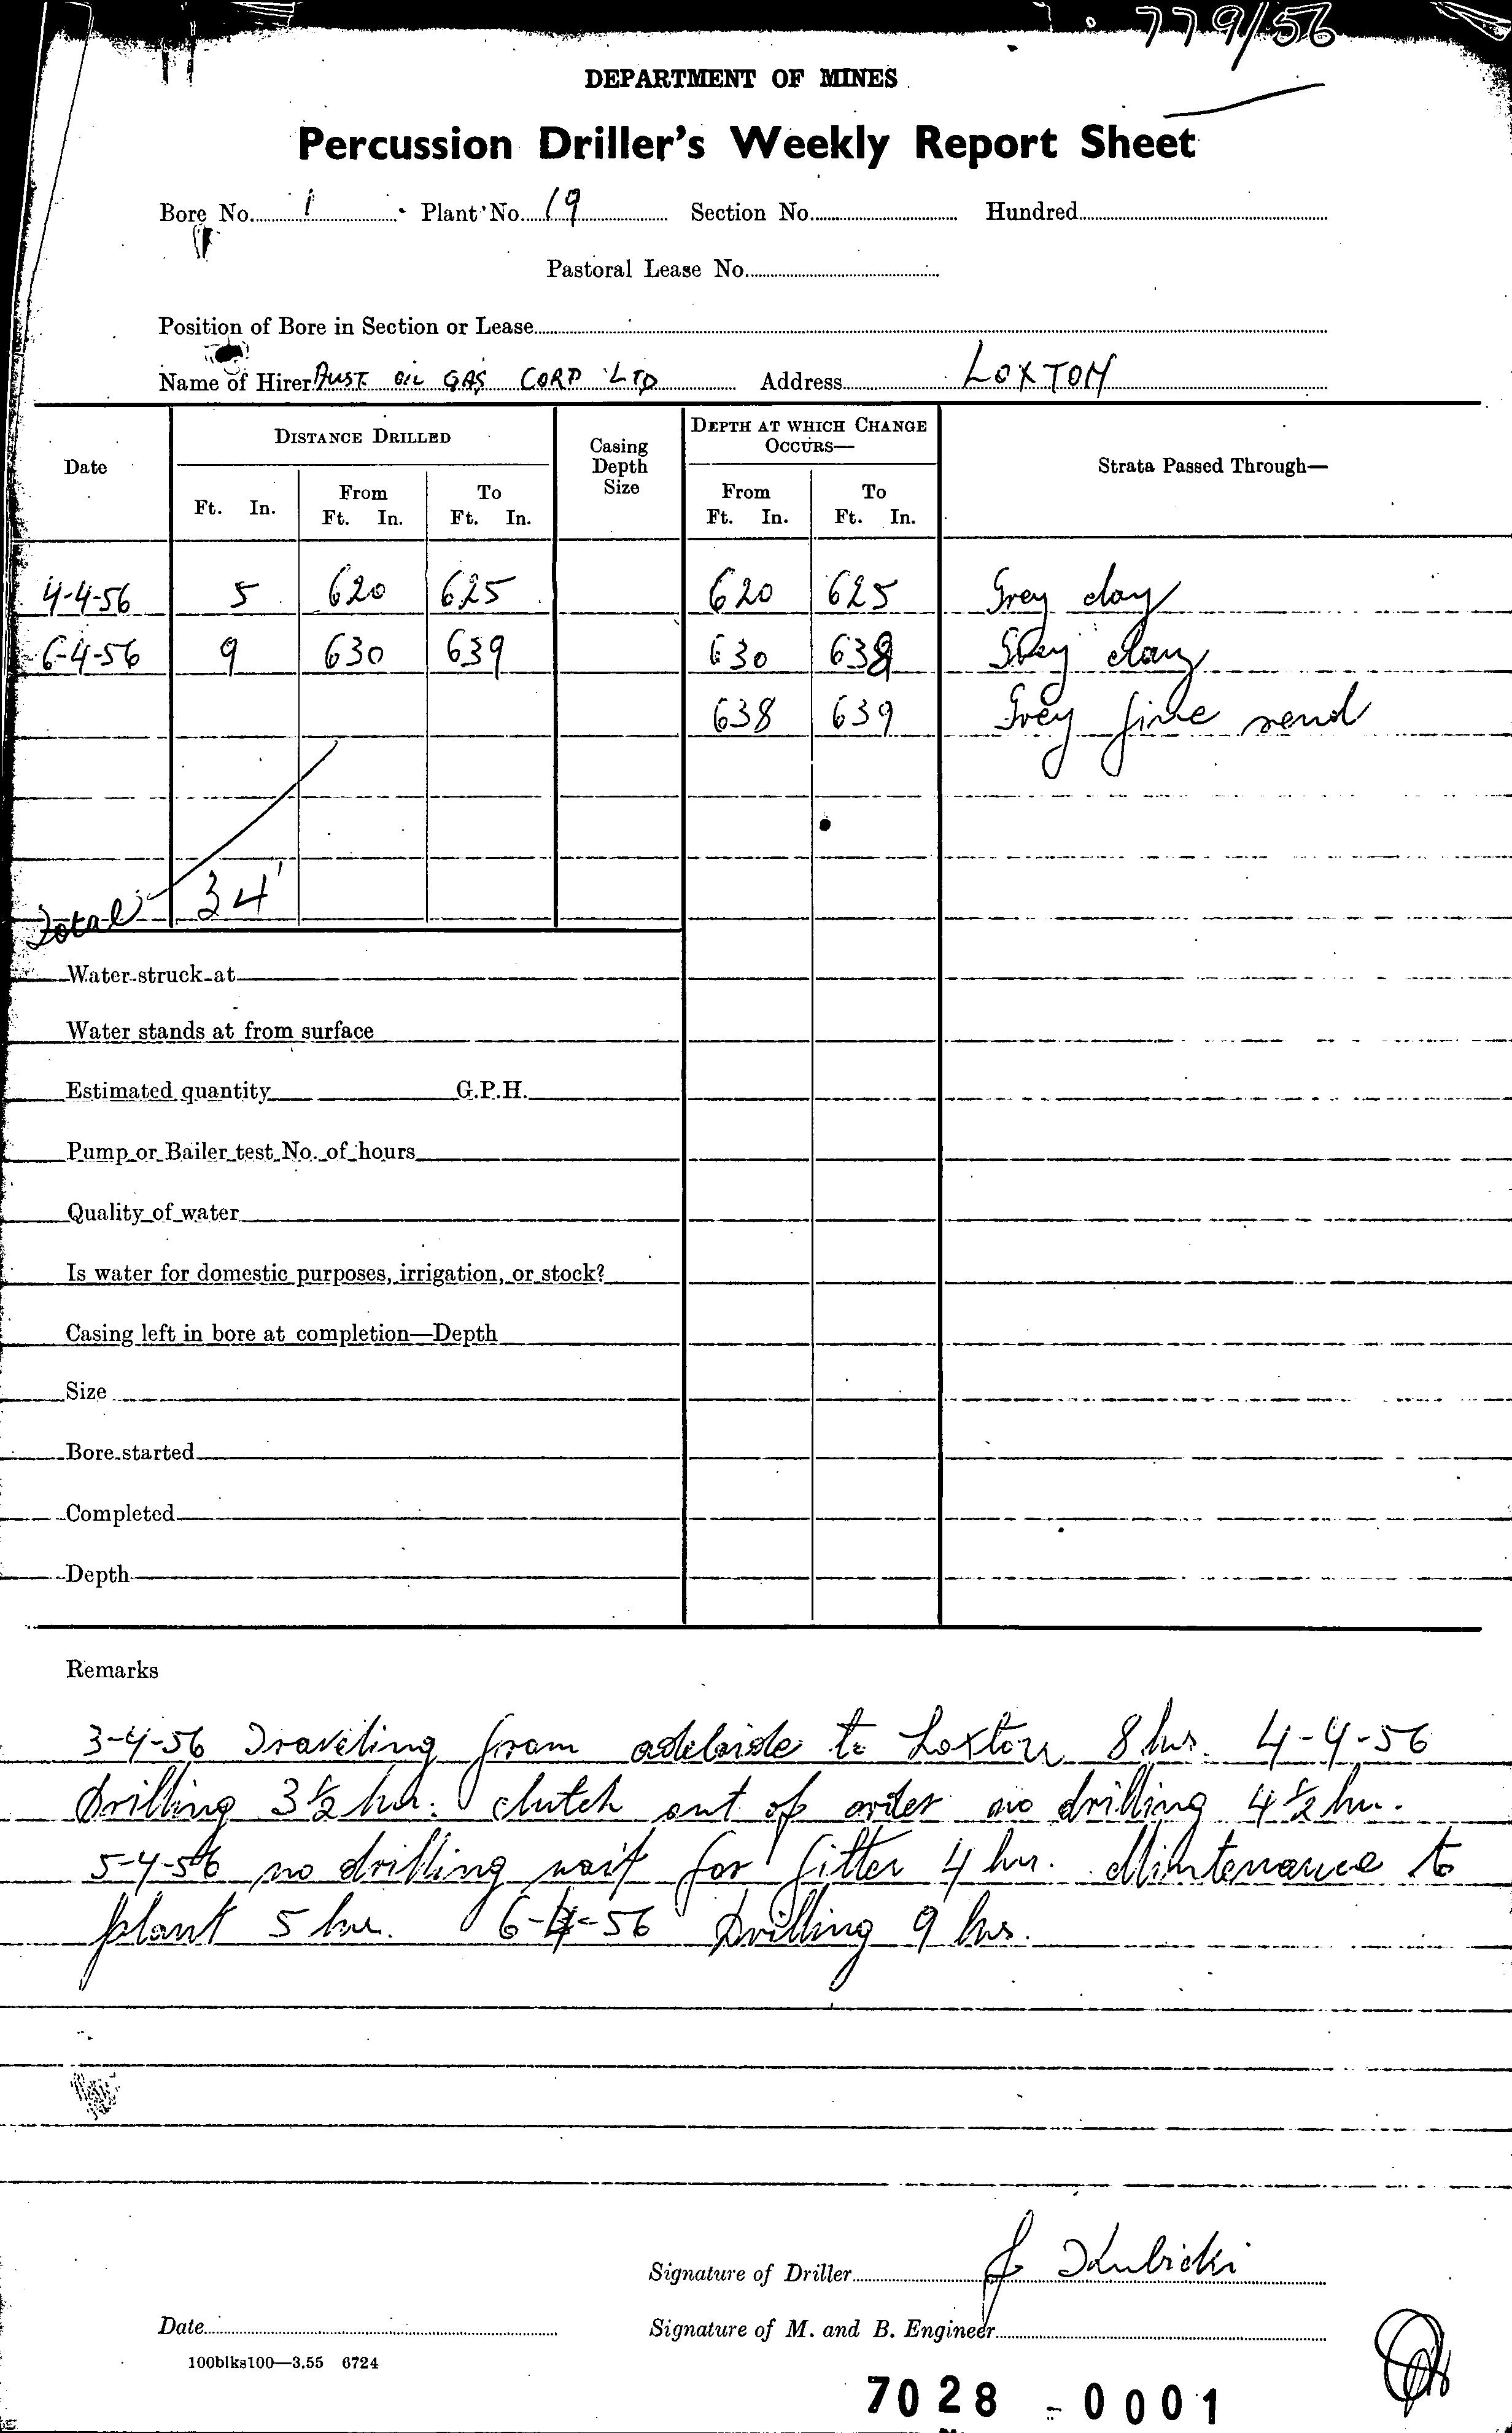 779/56
DEPARTMENT OF MINES
Percussion Driller's Weekly Report Sheet
Bore No. 1 Plant No. 19 Section No. Hundred
Pastoral Lease No.
Position of Bore in Section or Lease
Name of Hirer AUST. OIL GAS CORP LTD Address LOXTON
Date DISTANCE DRILLED Casing Depth Size DEPTH AT WHICH CHANGE OCCURS— Strata Passed Through—
Ft. In. From Ft. In. To Ft. In. From Ft. In. To Ft. In.
4-4-56 5 620 625 620 625 Grey clay
6-4-56 9 630 639 630 638 Grey clay
638 639 Grey fine sand
Total 34'
Water struck at
Water stands at from surface
Estimated quantity G.P.H.
Pump or Bailer test No. of hours
Quality of water
Is water for domestic purposes, irrigation, or stock?
Casing left in bore at completion—Depth
Size
Bore started
Completed
Depth
Remarks
3-4-56 Traveling from adelaide to Loxton 8 hrs. 4-4-56
Drilling 3½ hrs. clutch out of order no drilling 4½ hrs.
5-4-56 no drilling wait for fitter 4 hrs. Mintenance to
plant 5 hrs. 6-4-56 Drilling 9 hrs.
Signature of Driller J Kubicki
Date Signature of M. and B. Engineer
100blks100—3.55 6724
7028-0001